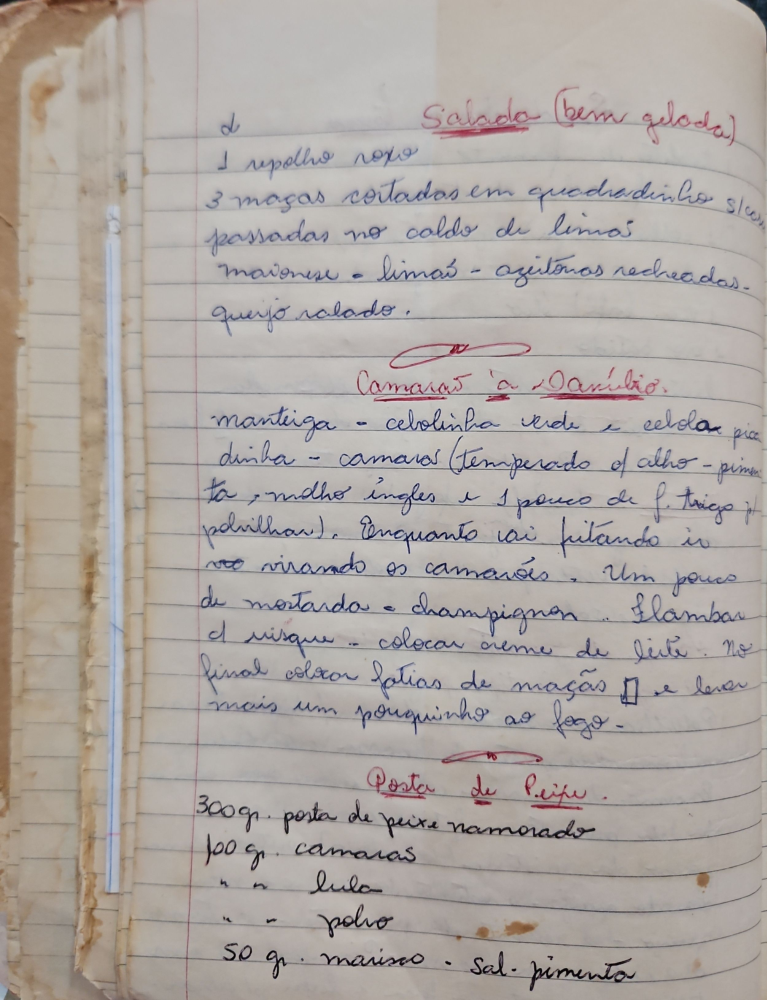 Salada (bem gelada)
d
1 repolho roxo
3 maças cortadas em quadradinho s/cas
passadas no caldo de limaõ
maionese - limaõ - azeitonas recheadas -
queijo ralado.
Camaraõ à Danúbio.
manteiga - cebolinha verde e cebola pica
dinha - camaraõ (temperado c/ alho - pimen
ta, molho ingles e 1 pouco de f. trigo p/
polvilhar). Enquanto vai fritando ir
virando os camarões. Um pouco
de mostarda - champignon. Flambar
c/ uisque - colocar creme de leite. No
final colocar fatias de maçãs e levar
mais um pouquinho ao fogo -
Posta de Peixe.
300 gr. posta de peixe namorado
100 gr. camaraõ
" " lula
" " polvo
50 gr. marisco - sal - pimenta